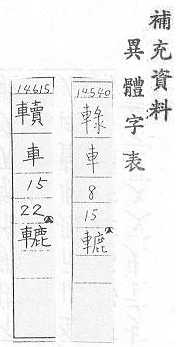 補充資料
異體字表
14540
車
8
15
轆
14615
車
15
22
轆